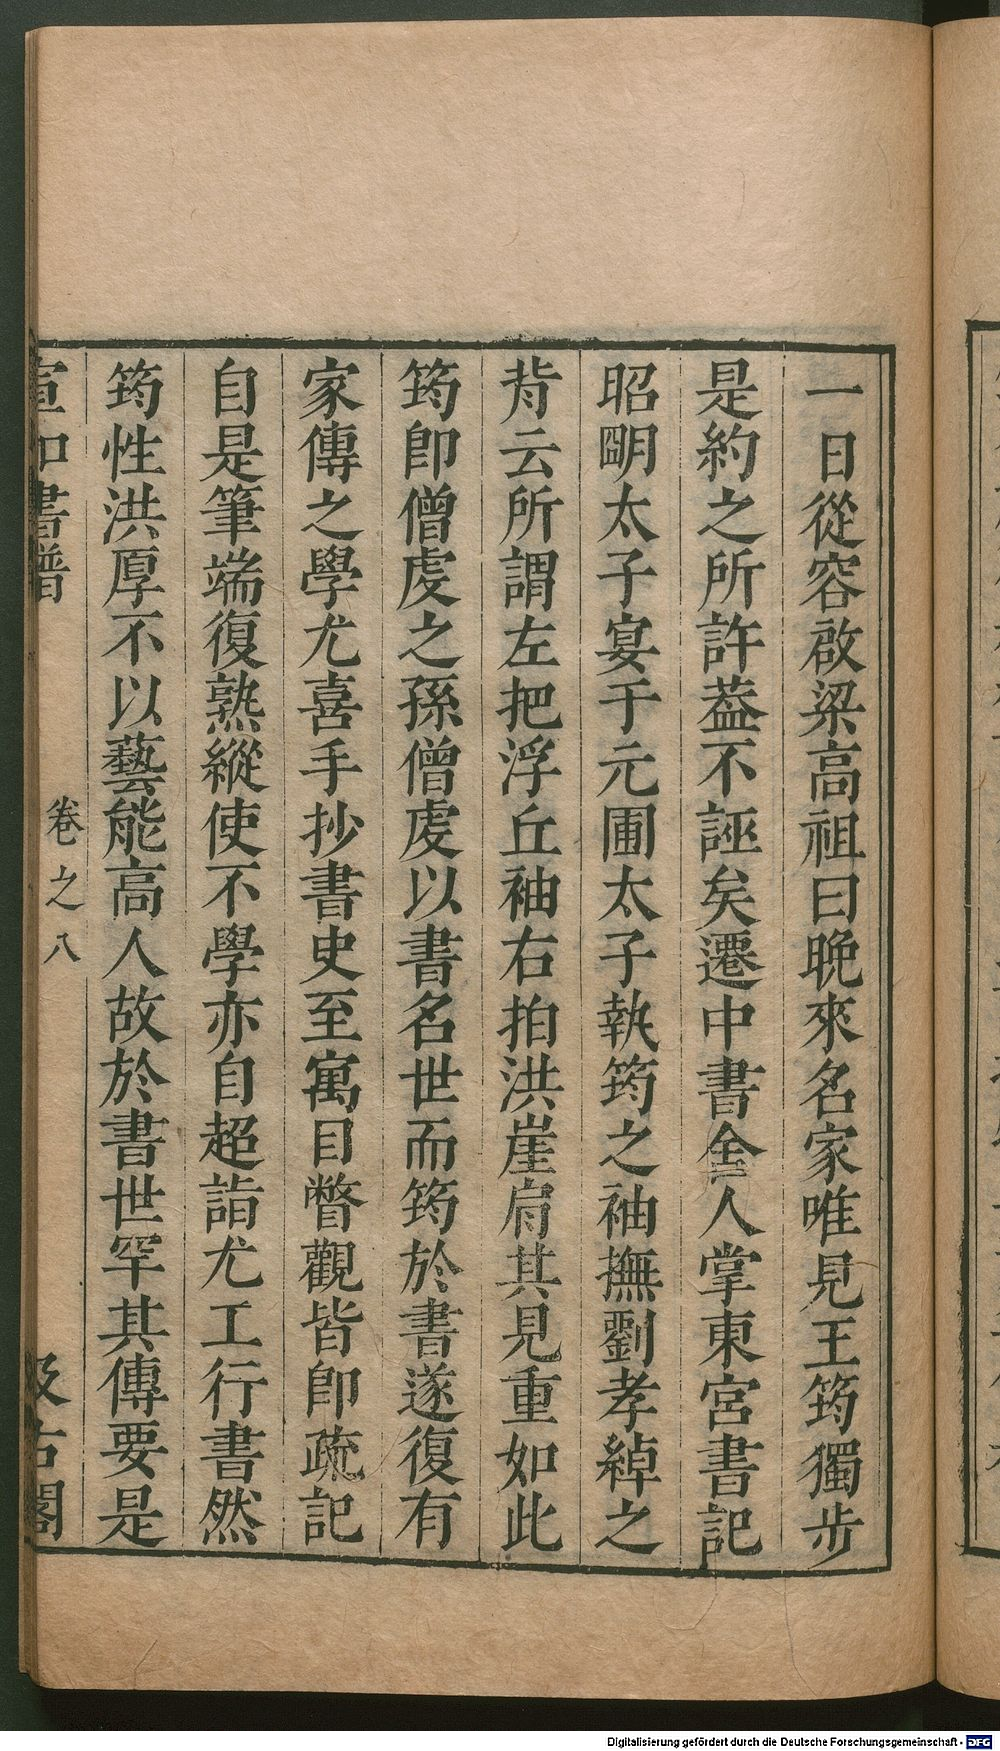 一日從容啟梁高祖曰晚來名家唯見王筠獨步
是約之所許葢不誣矣遷中書舍人掌東宮書記
昭明太子宴于元圃太子執筠之袖撫劉孝綽之
背云所謂左把浮丘袖右拍洪崖肩其見重如此
筠卽僧虔之孫僧虔以書名世而筠於書遂復有
家傳之學尤喜手抄書史至寓目瞥觀皆卽疏記
自是筆端復熟縱使不學亦自超詣尤工行書然
筠性洪厚不以藝能高人故於書世罕其傳要是
宣和書譜 卷之八 汲古閣
Digitalisierung gefördert durch die Deutsche Forschungsgemeinschaft - DFG